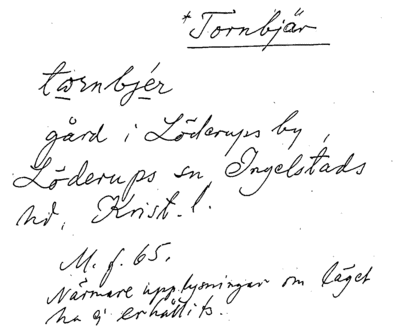 *Tornbjär
tornbjér
gård i Löderups by,
Löderups sn Ingelstads
hd, Krist. l.
M. f. 65.
Närmare upplysningar om läget
ha ej erhållits.